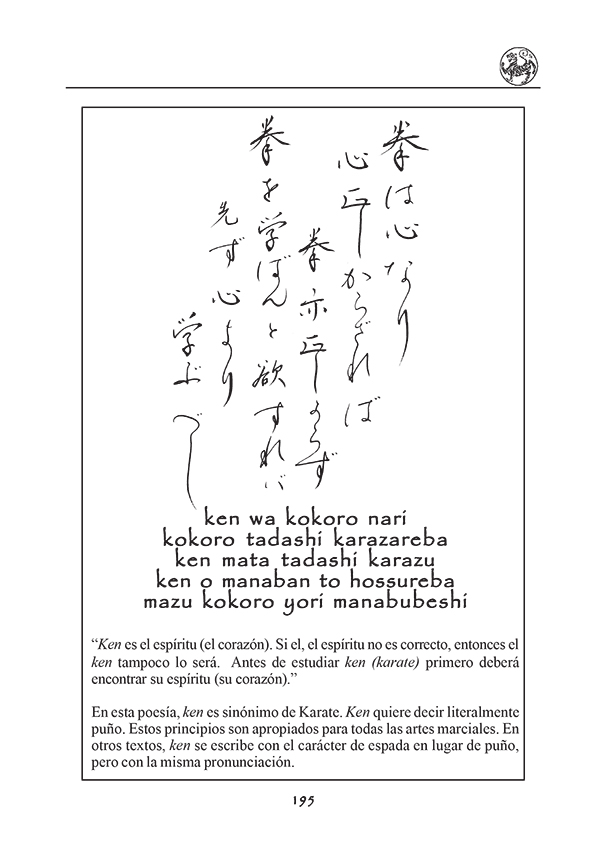 拳は心なり
心正しからざれば
拳亦正しからず
拳を学ばんと欲すれば
先ず心より
学ぶべし
ken wa kokoro nari
kokoro tadashi karazareba
ken mata tadashi karazu
ken o manaban to hossureba
mazu kokoro yori manabubeshi
“Ken es el espíritu (el corazón). Si el, el espíritu no es correcto, entonces el
ken tampoco lo será. Antes de estudiar ken (karate) primero deberá
encontrar su espíritu (su corazón).”
En esta poesía, ken es sinónimo de Karate. Ken quiere decir literalmente
puño. Estos principios son apropiados para todas las artes marciales. En
otros textos, ken se escribe con el carácter de espada en lugar de puño,
pero con la misma pronunciación.
195